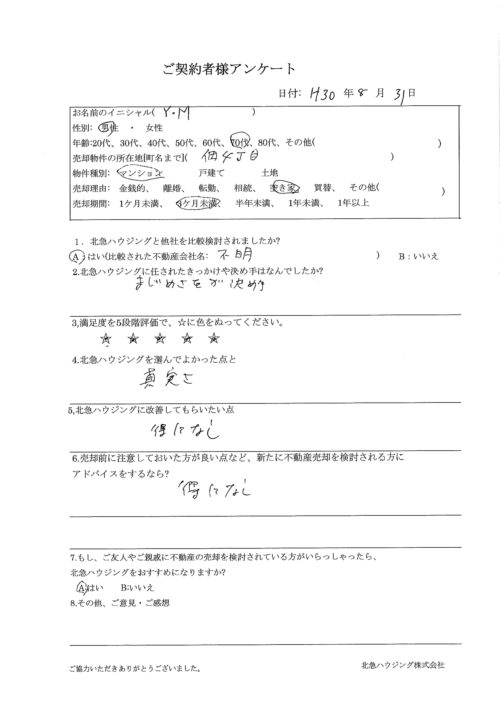 ご契約者様アンケート
日付: H30 年 8 月 31日
お名前のイニシャル( Y.M )
性別: 男性 ・ 女性
年齢:20代、30代、40代、50代、60代、70代、80代、その他( )
売却物件の所在地[町名まで]( 佃4丁目 )
物件種別: マンション 戸建て 土地
売却理由: 金銭的、 離婚、 転勤、 相続、 空き家、 買替、 その他( )
売却期間: 1ケ月未満、 3ケ月未満、 半年未満、 1年未満、 1年以上
1．北急ハウジングと他社を比較検討されましたか?
A：はい(比較された不動産会社名: 不明 ) B：いいえ
2.北急ハウジングに任されたきっかけや決め手はなんでしたか?
まじめさをが決め手
3,満足度を5段階評価で、☆に色をぬってください。
★ ★ ★ ★ ★
4.北急ハウジングを選んでよかった点と
真実さ
5,北急ハウジングに改善してもらいたい点
得になし
6.売却前に注意しておいた方が良い点など、新たに不動産売却を検討される方に
アドバイスをするなら?
得になし
7.もし、ご友人やご親戚に不動産の売却を検討されている方がいらっしゃったら、
北急ハウジングをおすすめになりますか?
A:はい B:いいえ
8.その他、ご意見・ご感想
ご協力いただきありがとうございました。 北急ハウジング株式会社